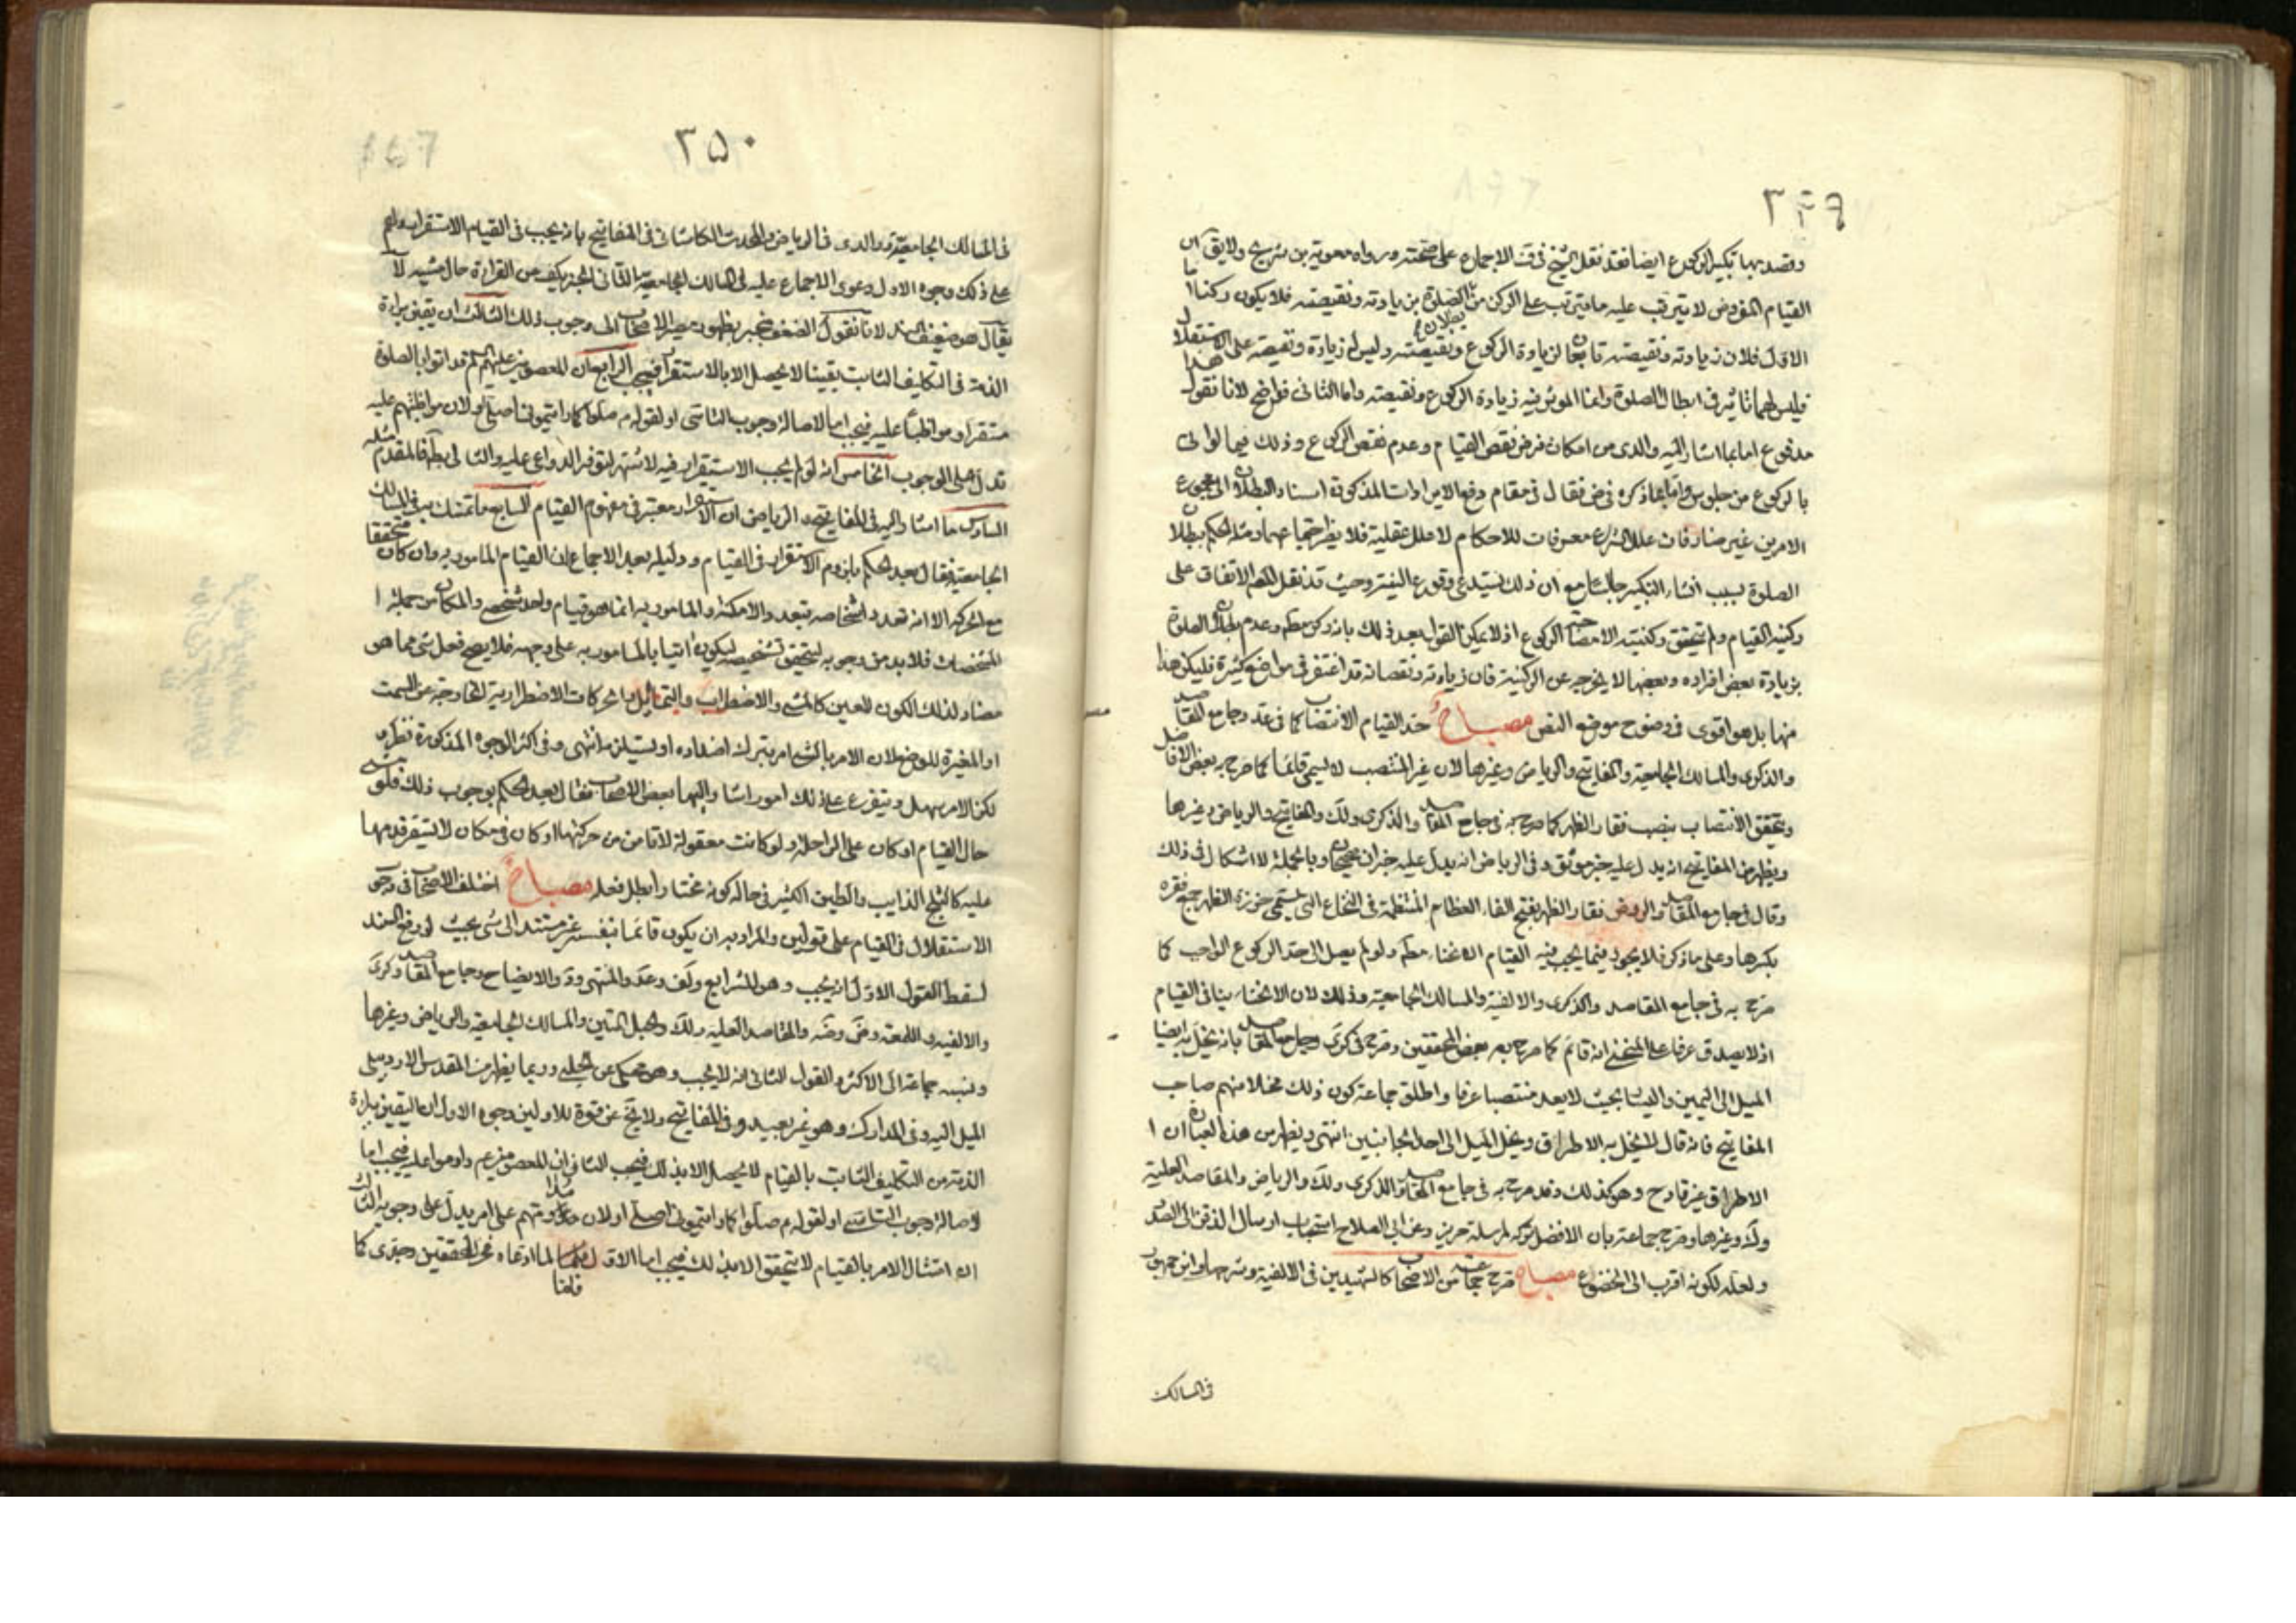 ٣٤٩
وقصد بها تكبير الركوع ايضا فقد نقل الشيخ في ف الاجماع على صحته ورواه معوية بن شريح ولا يق ان
القيام المفروض لا يترتب عليه ما يترتب على الركن من بطلان الصلوة بزيادته ونقيصته فلا يكون ركنا اما
الاول فلان زيادته ونقيصته تابعان لزيادة الركوع ونقيصته وليس له زيادة ونقيصة على الاستقلال
فليس لهما تاثير في ابطال الصلوة وانما الموثر فيه زيادة الركوع ونقيصته واما الثاني فواضح لانا نقول هذا
مدفوع اما بما اشار اليه والدي من امكان فرض نقص القيام وعدم نقص الركوع وذلك فيما لو اتى
بالركوع من جلوس واما بما ذكره في ض فقال في مقام دفع الايرادات المذكورة اسناد البطلان الى مجموع
الامرين غير ضار فان علل الشرع معرفات للاحكام لا علل عقلية فلا يضر اجتماعهما ومثله الحكم ببطلان
الصلوة بسبب انشاء التكبير جالسا مع ان ذلك يستدعي وقوع النية وحيث قد نقل المصنف الاتفاق على
ركنية القيام ولم تتحقق ركنيته الا مصاحبته الركوع اذ لا يمكن القول بعد ذلك بانه ركن مطلقا وعدم بطلان الصلوة
بزيادة بعض افراده وبعضها لا يخرجه عن الركنية فان زيادته ونقصانه قد اغتفر في مواضع كثيرة فليكن هذا
منها بل هو اقوى في وضوح موضع النص مصباح حد القيام الانتصاب كما في عد وجامع المقاصد
والذكرى والمسالك الجامعية والمفاتيح والرياض وغيرها لان غير المنتصب لا يسمى قائما كما صرح به بعض الافاضل
ويتحقق الانتصاب بنصب فقار الظهر كما صرح به في جامع المقاصد والذكرى ولك والمفاتيح والرياض وغيرها
ويظهر من المفاتيح انه يدل عليه خبر موثق وفي الرياض انه يدل عليه خبران صحيحان وبالجملة لا اشكال في ذلك
وقال في جامع المقاصد والروض فقار الظهر بفتح الفاء العظام المنتظمة في النخاع التي تسمى خرزة الظهر جمع فقرة
بكسرها وعلى ما ذكر فلا يجوز فيما يجب فيه القيام الانحناء مطلقا ولو لم يصل الى حد الركوع الواجب كما
صرح به في جامع المقاصد والذكرى والالفية والمسالك الجامعية وذلك لان الانحناء ينافي القيام
اذ لا يصدق عرفا على المنحني انه قائم كما صرح به بعض المحققين وصرح في كرى وجامع المقاصد بانه يخل به ايضا
الميل الى اليمين واليسار بحيث لا يعد منتصبا عرفا واطلق جماعة كون ذلك مخلا منهم صاحب
المفاتيح فانه قال لا يخل به الاطراق ويخل الميل الى احد الجانبين انتهى ويظهر من هذه العبارة ان ا
الاطراق غير قادح وهو كذلك وقد صرح به في جامع المقاصد والذكرى ولك والرياض والمقاصد العلية
ولك وغيرها وصرح جماعة بان الافضل تركه لمرسلة حريز وعن ابي الصلاح استحباب ارسال الذقن الى الصدر
ولعله لكونه اقرب الى الخضوع مصباح صرح جماعة من الاصحاب كالشهيدين في الالفية وشرحها وابن جمهور
في المسالك
٣٥٠
في المسالك الجامعية والدي في الرياض والمحدث الكاشاني في المفاتيح بانه يجب في القيام الاستقرار ولهم
على ذلك وجوه الاول دعوى الاجماع عليه في المسالك الجامعية الثاني الخبر يكف من القراءة حال مشيه لا
يقال هو ضعيف السند لانا نقول الضعف منجبر بظهور مصير الاصحاب الى وجوب ذلك الثالث ان يقين براءة
الذمة في التكاليف الثابت يقينا لا يحصل الا بالاستقرار فيجب الرابع ان المعصومين عليهم السلم قد اتوا بالصلوة
مستقرا ومواظبا عليه فيجب اما لاصالة وجوب التاسي او لقوله ص صلوا كما رايتموني اصلي او لان مواظبتهم عليه
تدل على الوجوب الخامس انه لو لم يجب الاستقرار فيه لاشتهر لتوفر الدواعي عليه والتالي بط فالمقدم مثله
السادس ما اشار اليه في المفاتيح وتبعه الرياض ان الاستقرار معتبر في مفهوم القيام السابع ما تمسك به في المسالك
الجامعية فقال بعد الحكم بلزوم الاستقرار في القيام ودليله بعد الاجماع ان القيام المامور به وان كان متحققا
مع الحركة الا انه تعدد اشخاصه بتعدد الامكنة والمامور به انما هو قيام واحد شخصي والمكان من جملة ا
المشخصات فلا بد من وجوبه ليتحقق تشخيصه ليكون اتيا بالمامور به على وجهه فلا يصح فعل شيء مما هو
مضاد لذلك الكون المعين كالمشي والاضطراب والتمايل والحركات الاضطرارية الخارجة عن السمت
او المغيرة للوضع لان الامر بالشيء امر بترك اضداده او يستلزمه انتهى وفي اكثر الوجوه المذكورة نظر
لكن الامر سهل ويتفرع على ذلك امور اشار اليها بعض الاصحاب فقال بعد الحكم بوجوب ذلك فلو مشى
حال القيام او كان على الراحلة ولو كانت معقولة لا تامن من حركتها او كان في مكان لا تستقر قدمها
عليه كالثلج الذايب والطين الكثير في حالة كونه مختارا بطل فعله مصباح اختلف الاصحاب في وجوب
الاستقلال في القيام على قولين والمراد به ان يكون قائما بنفسه غير مستند الى شيء بحيث لو رفع السند
لسقط القول الاول انه يجب وهو للشرايع ولف وعد والمنتهى ود والايضاح وجامع المقاصد وكرى
والالفية واللمعة وض وضه والمقاصد العلية ولك والحبل المتين والمسالك الجامعية والرياض وغيرها
ونسبه جماعة الى الاكثر والقول الثاني انه لا يجب وهو محكي عن الحلبي وربما يظهر من المقدس الاردبيلي
الميل اليه وفي المدارك وهو غير بعيد وفي المفاتيح ولا يخ عن قوة للاولين وجوه الاول ان اليقين ببراءة
الذمة من التكليف الثابت بالقيام لا يحصل الا بذلك فيجب الثاني ان المعصومين ع داوموا عليه فيجب اما
لاصالة وجوب التاسي او لقوله ص صلوا كما رايتموني اصلي او لان مداومتهم على امر يدل على وجوبه الثالث
ان امتثال الامر بالقيام لا يتحقق الا بذلك فيجب اما الاول فلما ادعاه فخر المحققين وجدي كما
فلنا